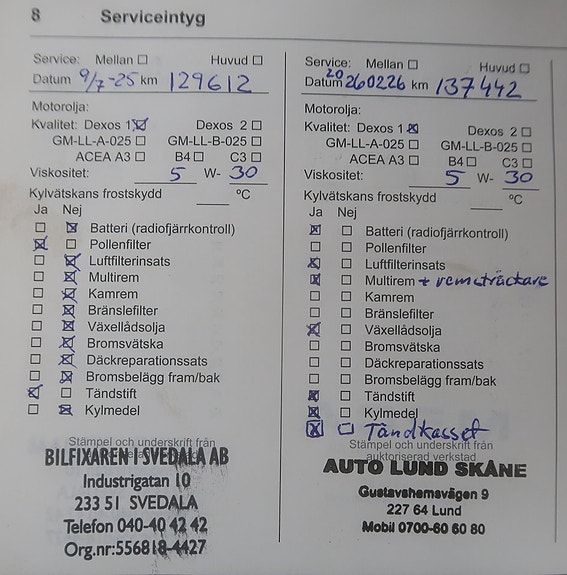 8 Serviceintyg
Service: Mellan ☐ Huvud ☐
Datum 9/7-25 km 129612
Motorolja:
Kvalitet: Dexos 1 ☒ Dexos 2 ☐
GM-LL-A-025 ☐ GM-LL-B-025 ☐
ACEA A3 ☐ B4 ☐ C3 ☐
Viskositet: 5 W- 30
Kylvätskans frostskydd ____ °C
Ja Nej
☐ ☒ Batteri (radiofjärrkontroll)
☒ ☐ Pollenfilter
☐ ☒ Luftfilterinsats
☐ ☒ Multirem
☐ ☒ Kamrem
☐ ☒ Bränslefilter
☐ ☒ Växellådsolja
☐ ☒ Bromsvätska
☐ ☒ Däckreparationssats
☐ ☒ Bromsbelägg fram/bak
☒ ☐ Tändstift
☐ ☒ Kylmedel
Stämpel och underskrift från
BILFIXAREN I SVEDALA AB
Industrigatan 10
233 51 SVEDALA
Telefon 040-40 42 42
Org.nr:556818-4427
Service: Mellan ☐ Huvud ☐
Datum 20260226 km 137442
Motorolja:
Kvalitet: Dexos 1 ☒ Dexos 2 ☐
GM-LL-A-025 ☐ GM-LL-B-025 ☐
ACEA A3 ☐ B4 ☐ C3 ☐
Viskositet: 5 W- 30
Kylvätskans frostskydd ____ °C
Ja Nej
☒ ☐ Batteri (radiofjärrkontroll)
☐ ☐ Pollenfilter
☒ ☐ Luftfilterinsats
☒ ☐ Multirem + remsträckare
☐ ☐ Kamrem
☐ ☐ Bränslefilter
☒ ☐ Växellådsolja
☐ ☐ Bromsvätska
☐ ☐ Däckreparationssats
☐ ☐ Bromsbelägg fram/bak
☒ ☐ Tändstift
☒ ☐ Kylmedel
☒ ☐ Tändkasset
Stämpel och underskrift från
auktoriserad verkstad
AUTO LUND SKÅNE
Gustavshemsvägen 9
227 64 Lund
Mobil 0700-60 60 80